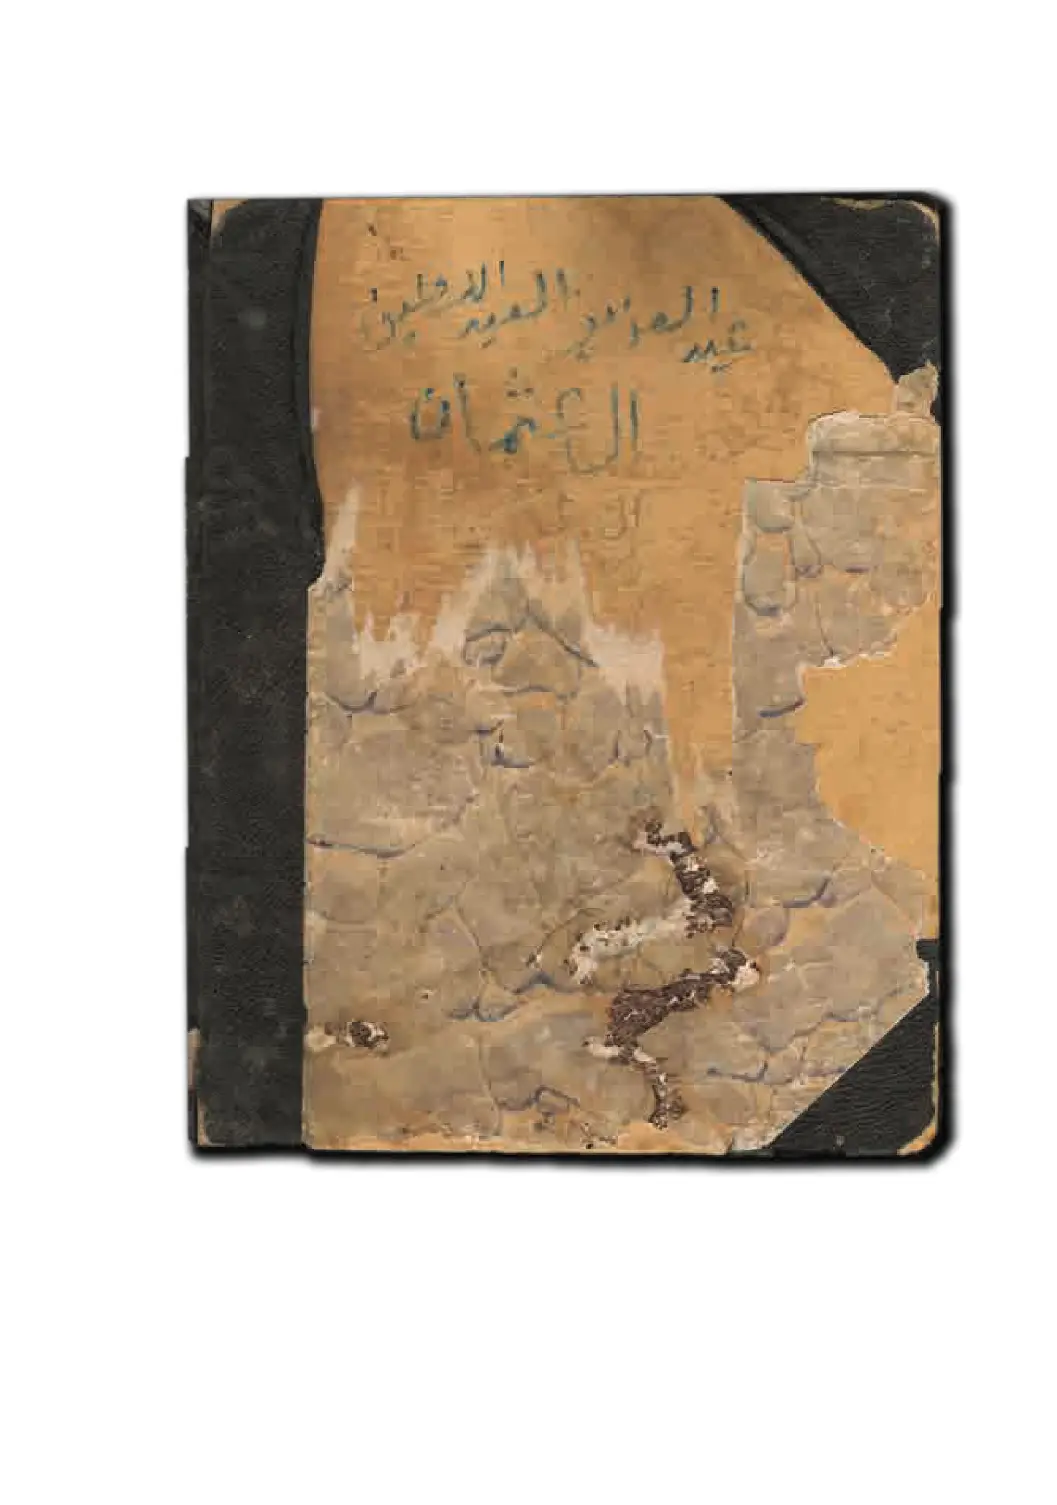 عبد العزيز العبد اللطيف
ال عثمان